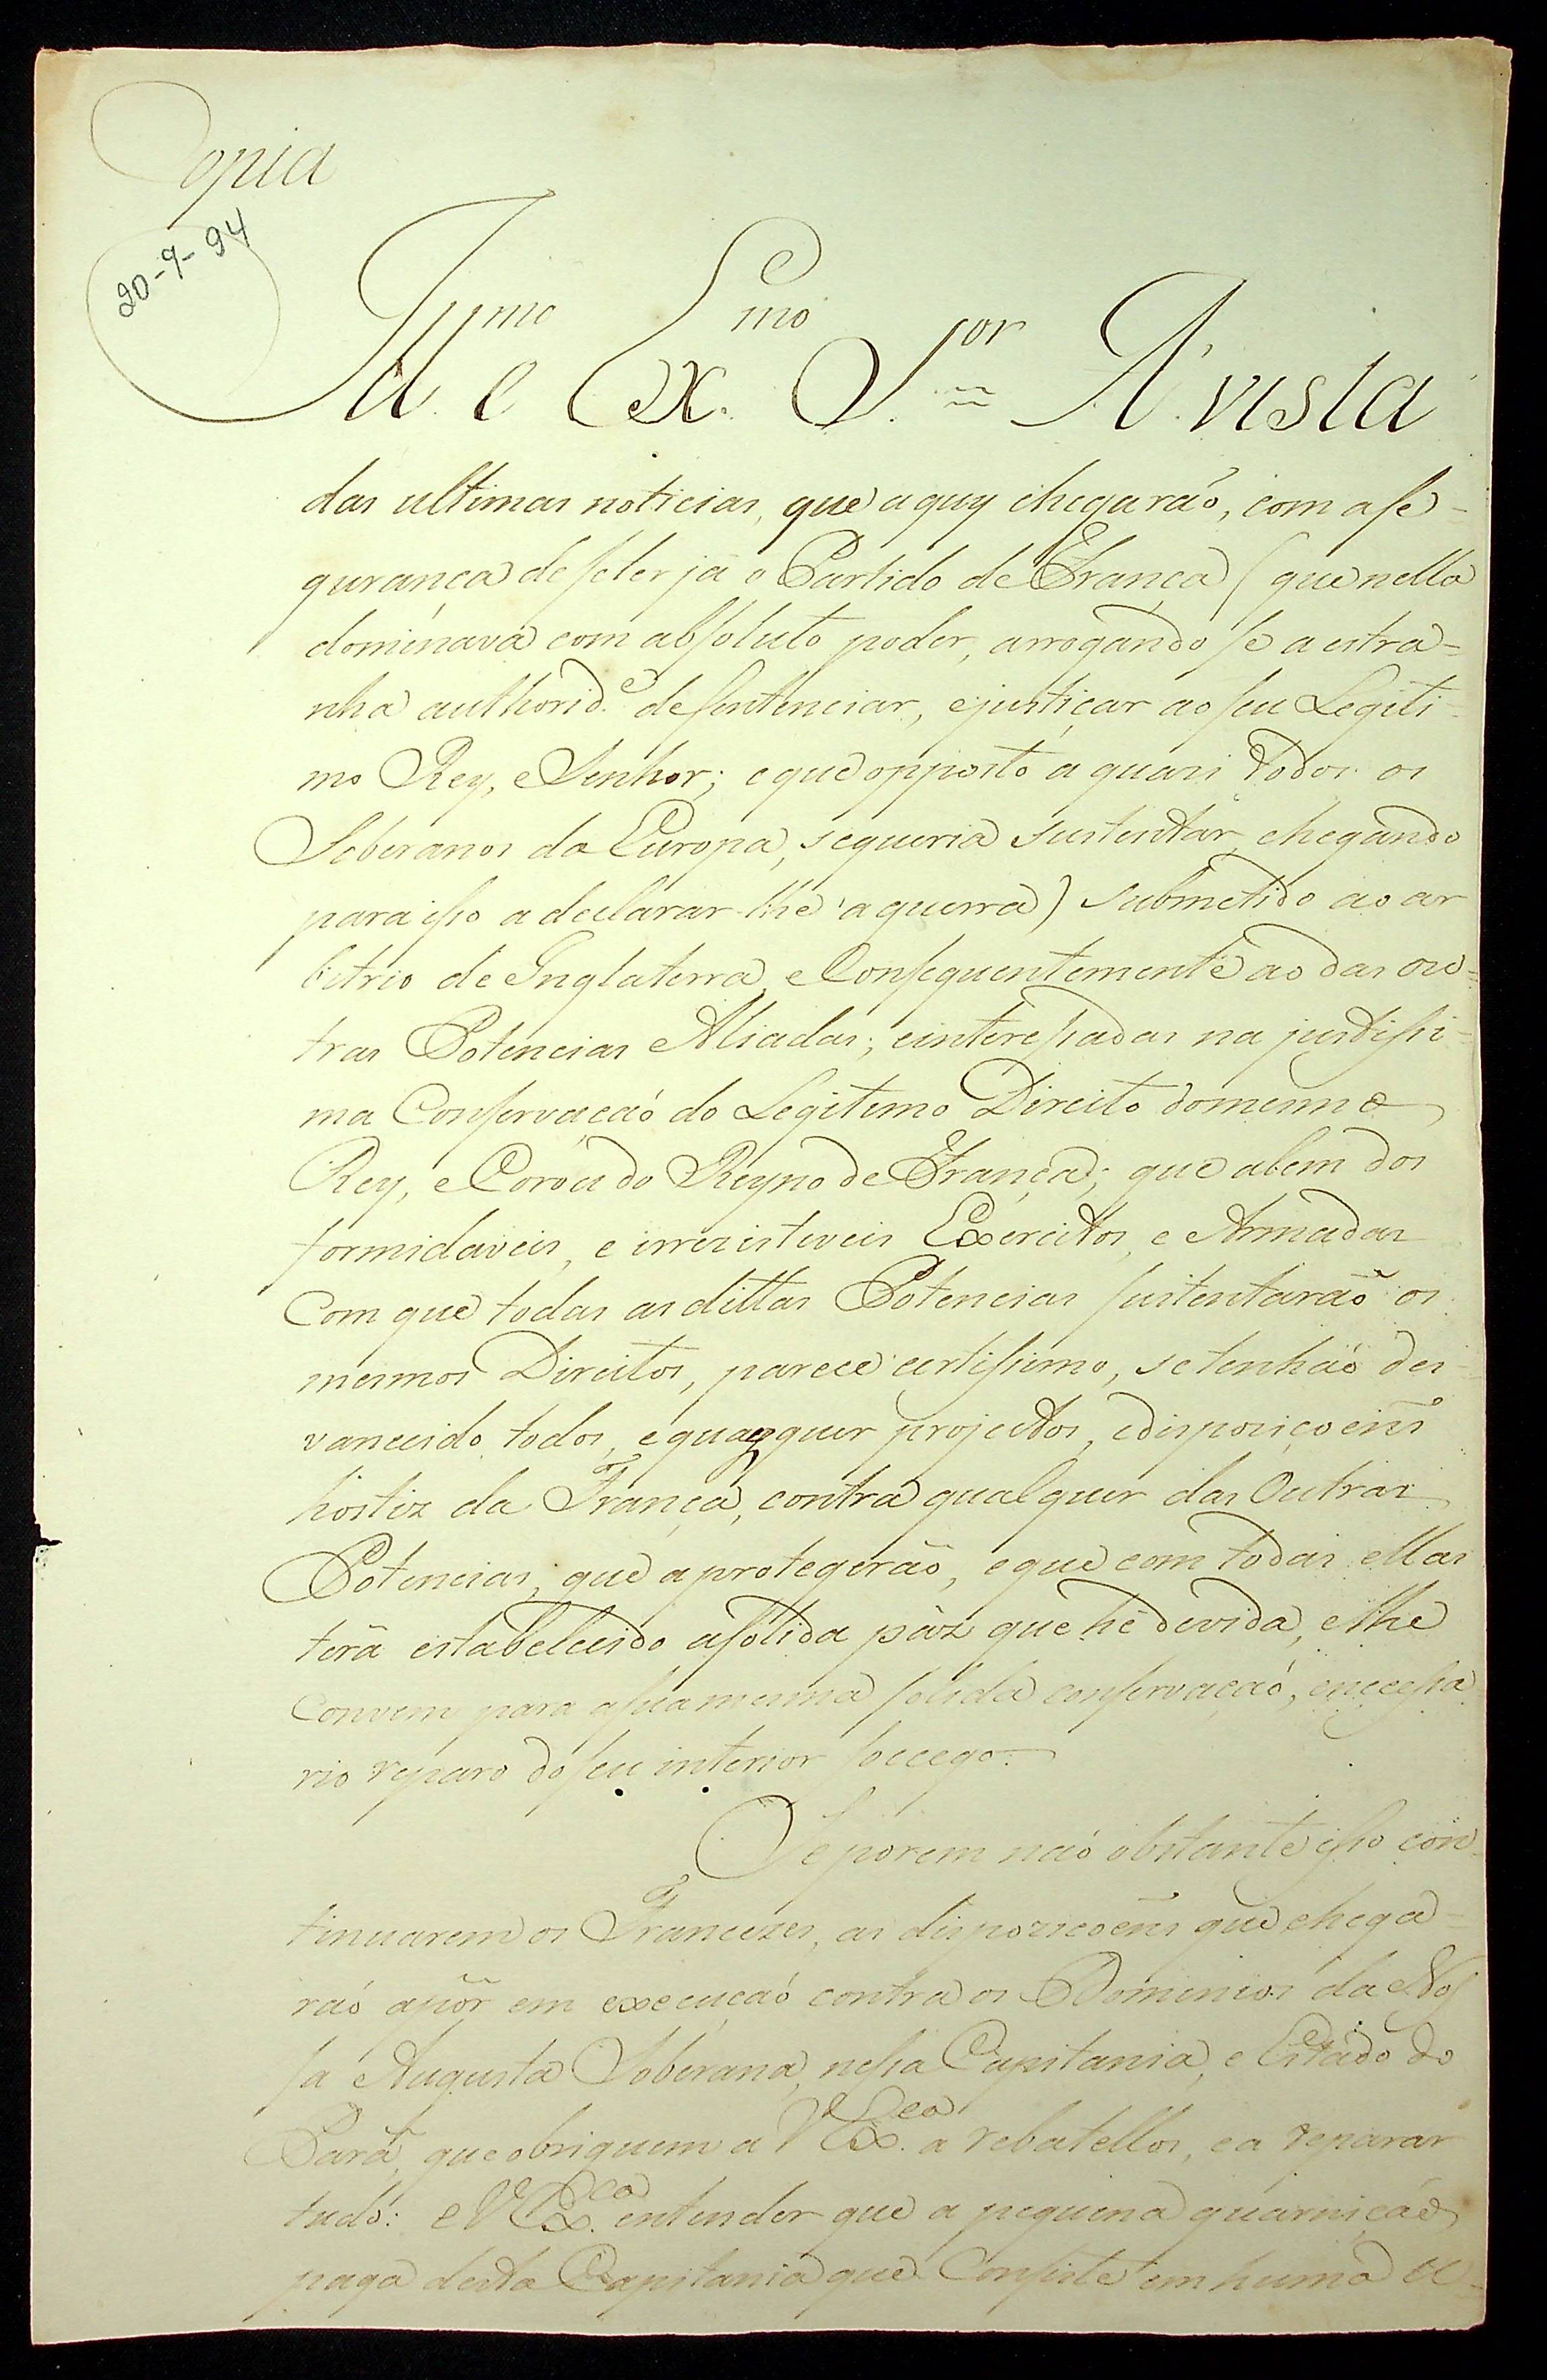 Copia
20-9-94
Ill.mo e Ex.mo S.or A' vista
das ultimas noticias, que aquy chegaraõ, com a se-
gurança de se ter já o Partido de França (que nella
dominava com absoluto poder, arrogando se a estra-
nha authorid.e de sentenciar, e justiçar ao seu Legiti-
mo Rey, e Senhor; e que opposto a quasi todos os
Soberanos da Europa, se queria sustentar, chegando
para isso a declarar-lhe a guerra) submetido ao ar
bitrio de Inglaterra, e Consequentemente ao das ou-
tras Potencias Aliadas; e interessadas na justissi-
ma Conservacaõ do Legitimo Direito do mesmo
Rey, e Corôa do Reyno de França; que alem dos
formidaveis, e irrezisteveis Exercitos, e Armadas
Com que todas as dittas Potencias sustentaraõ os
mesmos Direitos, parece certissimo, se tenhaõ des-
vanecido todos, e quazquer projectos, e dispoziçoens
hostiz da França, contra qualquer das Outras
Potencias, que a protegeraõ, e que com todas ellas
terá estabelecido a sólida páz que hé devida, e lhe
convem para a sua mesma solida conservaçaõ, e necessa
rio reparo do seu interior socego.
Se porem naõ obstante isso con-
tinuarem os Francezes, as dispozicoens que chega-
raõ a pôr em execuçaõ contra os Dominios da Nos
sa Augusta Soberana, nessa Capitania, e Estádo do
Pará, que obriguem a V Ex.ca a rebatellos, e a reparar
tudo: e V Ex.ca entender que a pequena guarniçaõ
paga desta Capitania que Consiste em huma